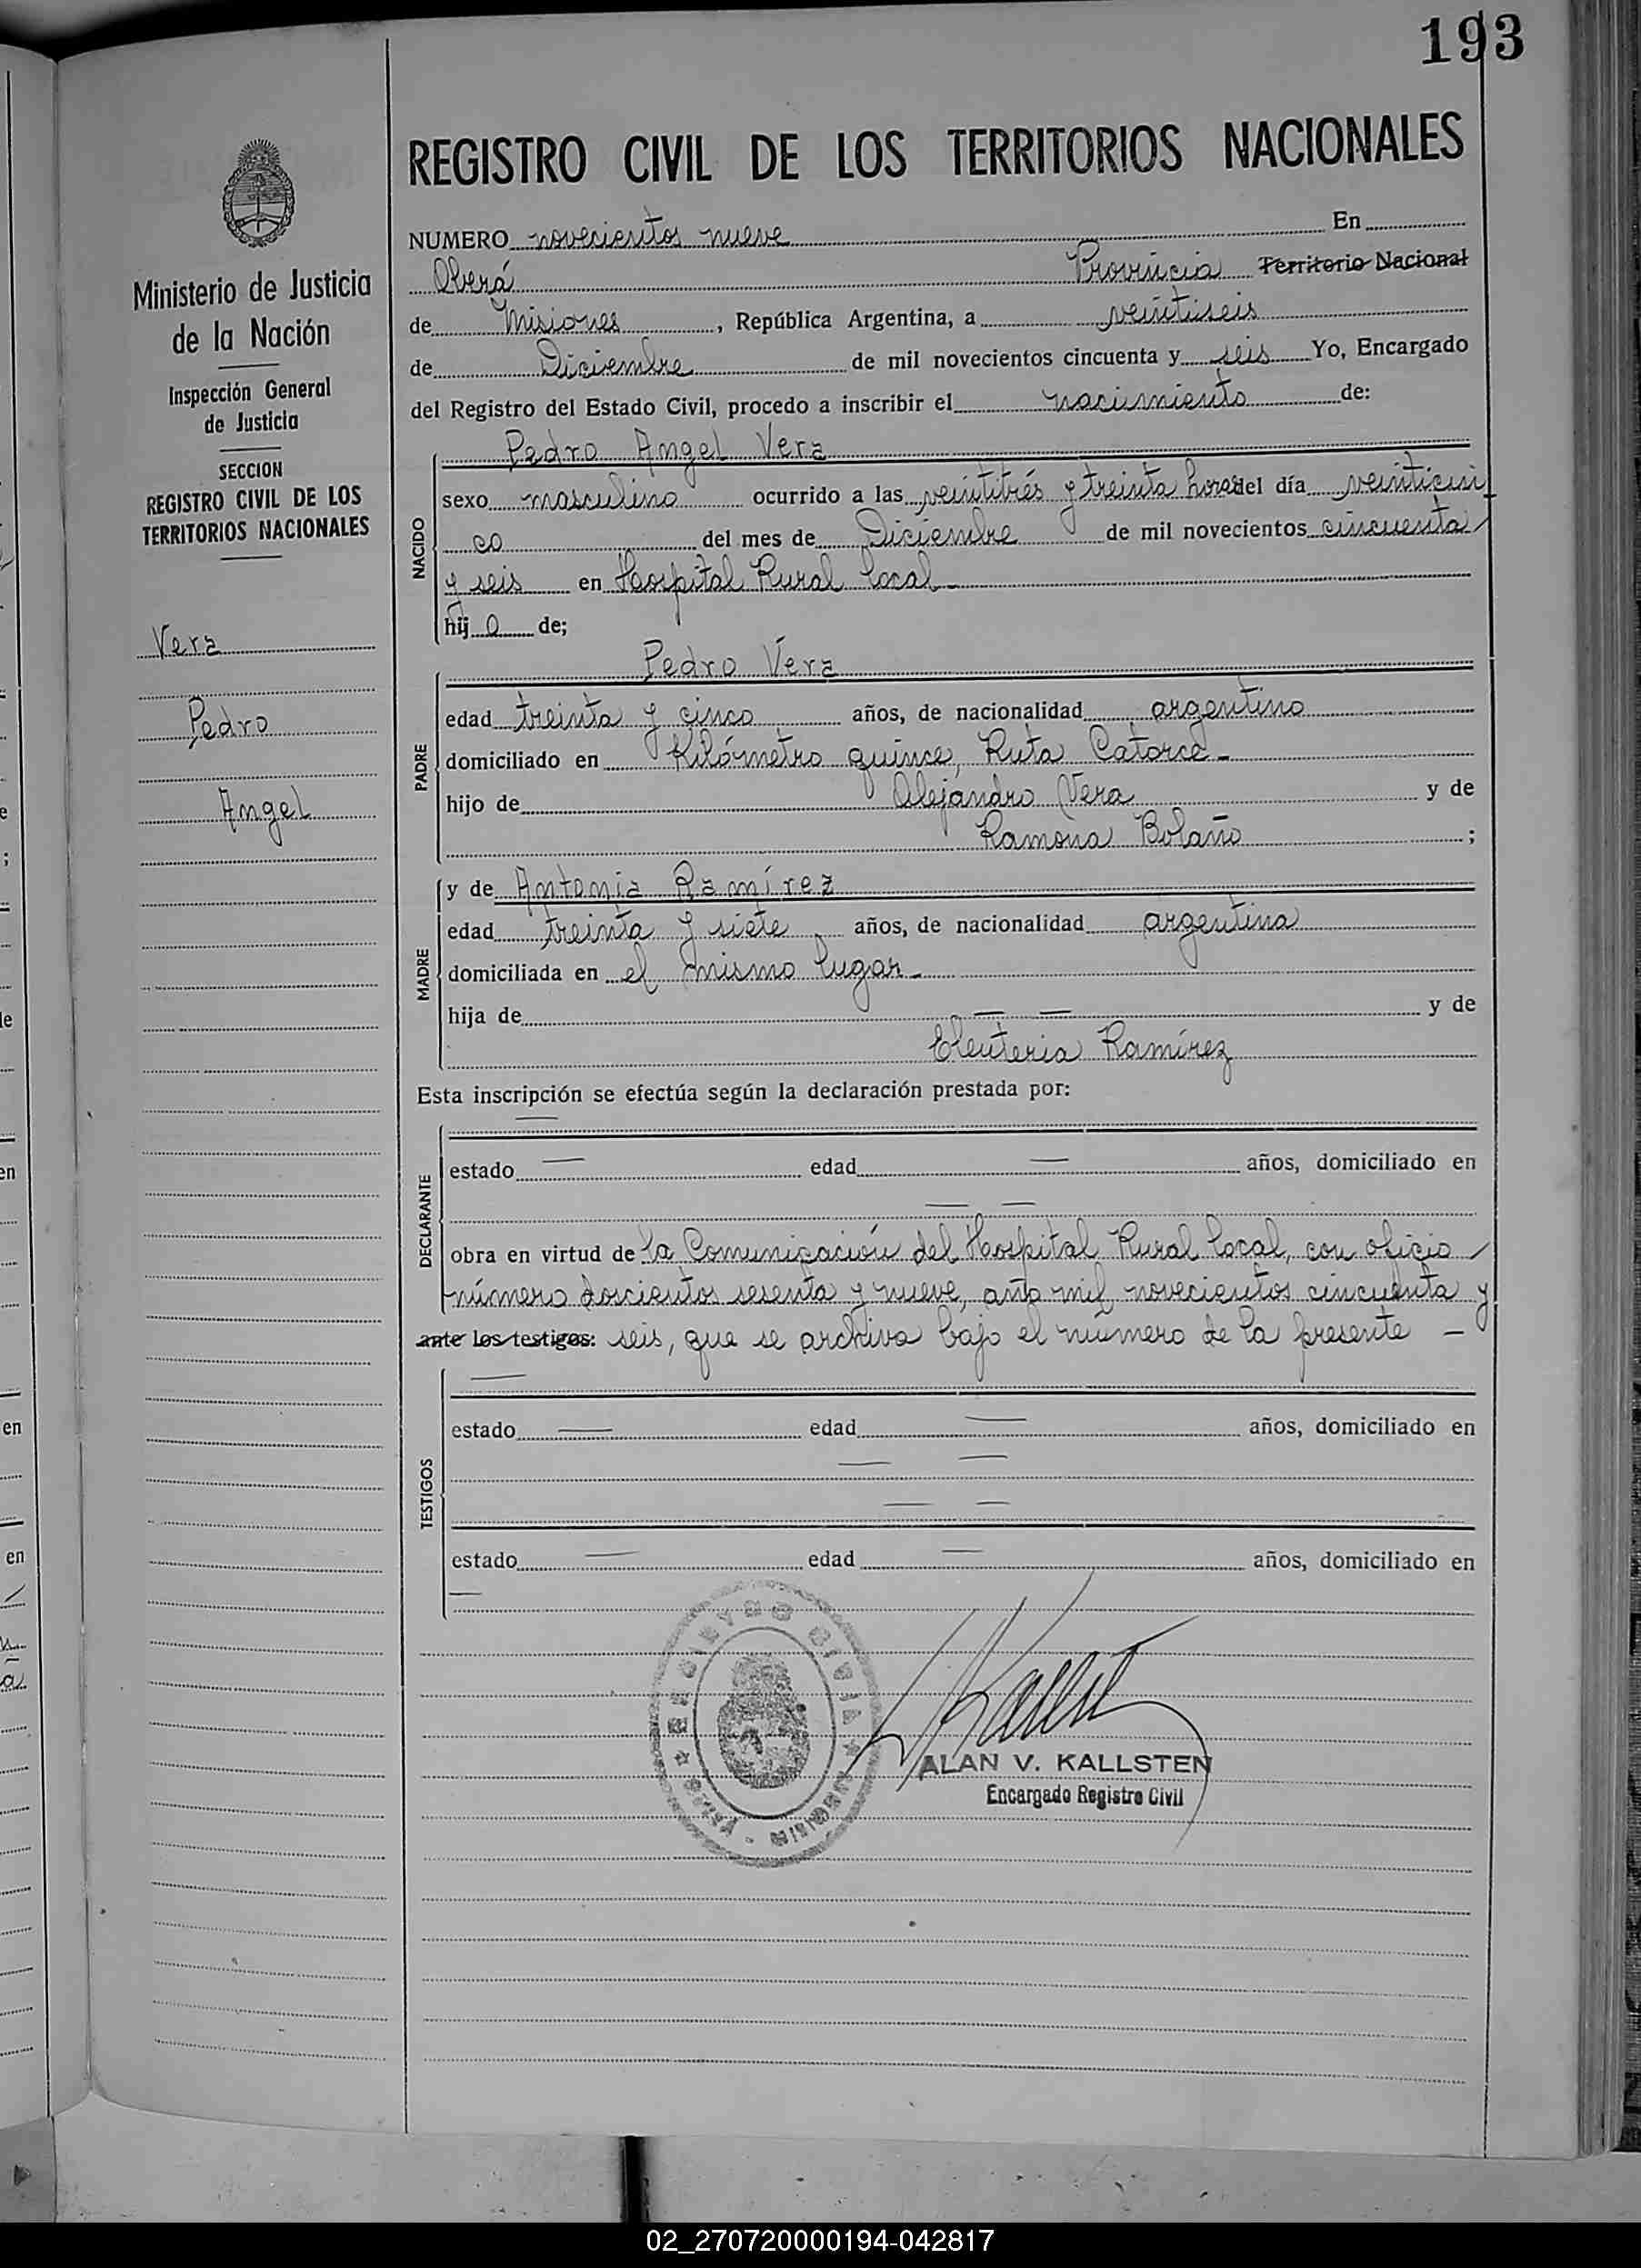 193
REGISTRO CIVIL DE LOS TERRITORIOS NACIONALES
Ministerio de Justicia
de la Nación
Inspección General
de Justicia
SECCION
REGISTRO CIVIL DE LOS
TERRITORIOS NACIONALES
Vera
Pedro
Angel
NUMERO novecientos nueve En
Oberá Provincia Territorio Nacional
de Misiones, República Argentina, a veintiseis
de Diciembre de mil novecientos cincuenta y seis Yo, Encargado
del Registro del Estado Civil, procedo a inscribir el nacimiento de:
Pedro Angel Vera
NACIDO
sexo masculino ocurrido a las veintitrés y treinta horas del día veinticin
co del mes de Diciembre de mil novecientos cincuenta
y seis en Hospital Rural local
hij o de;
Pedro Vera
PADRE
edad treinta y cinco años, de nacionalidad argentino
domiciliado en Kilómetro quince, Ruta Catorce
hijo de Alejandro Vera y de
Ramona Bolaño ;
MADRE
y de Antonia Ramírez
edad treinta y siete años, de nacionalidad argentina
domiciliada en el mismo lugar
hija de — — y de
Eleuteria Ramírez
Esta inscripción se efectúa según la declaración prestada por:
—
DECLARANTE
estado — edad — años, domiciliado en
— —
obra en virtud de la Comunicación del Hospital Rural local, con oficio
número doscientos sesenta y nueve, año mil novecientos cincuenta y
ante los testigos: seis, que se archiva bajo el número de la presente —
—
TESTIGOS
estado — edad — años, domiciliado en
— —
— —
estado — edad — años, domiciliado en
—
REGISTRO CIVIL
MISIONES
ALAN V. KALLSTEN
Encargado Registro Civil
02_270720000194-042817